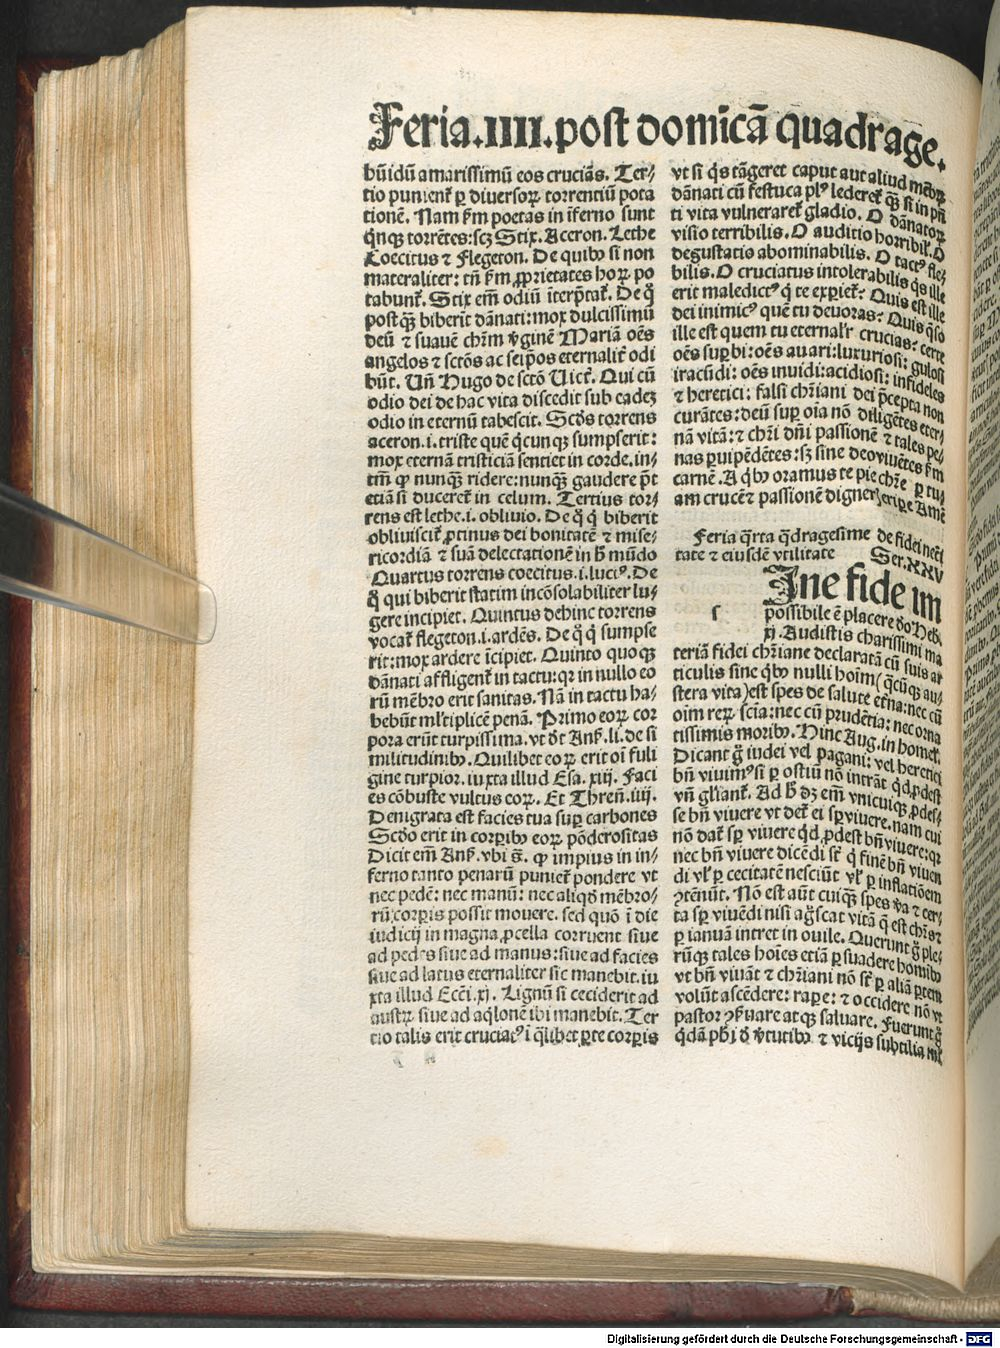 Feria.IIII.post domicã quadrage.
bũidũ amarissimũ eos cruciãs. Ter-
tio punient᷑ ꝑ diuersoꝝ torrentiũ pota
tionẽ. Nam ẜm poetas in ĩferno sunt
q̃nqꝫ torrẽtes: scꝫ Stix. Aceron. Lethe
Coecitus ⁊ Flegeton. De quibꝰ si non
materaliter: tñ ẜm ꝓprietates hoꝝ po
tabunt᷑. Stix em̃ odiũ iterp̃tat᷑. De q̃
postqꝫ biberit dãnati: mox dulcissimũ
deũ ⁊ suauẽ chr̃m v̾ginẽ Mariã oẽs
angelos ⁊ sctõs ac seip̃os eternalit᷑ odi
bũt. Uñ Hugo de sctõ Uict᷑. Qui cũ
odio dei de hac vita discedit sub eadeꝫ
odio in eternũ tabescit. Scd̾s torrens
aceron.i.triste quẽ q̃cunqꝫ sumpserit:
mox eternã tristiciã sentiet in corde.in-
tm̃ ꝙ nunqꝫ ridere: nunqꝫ gaudere p̃t
etiã si duceret᷑ in celum. Tertius tor-
rens est lethe.i.obliuio. De q̃ q̃ biberit
obliuiscit᷑ ꝓtinus dei bonitatẽ ⁊ mise-
ricordiã ⁊ suã delectationẽ in h̾ mũdo
Quartus torrens coecitus.i.lucꝰ. De
q̃ qui biberit statim incõsolabiliter lu-
gere incipiet. Quintus dehinc torrens
vocat᷑ flegeton.i.ardẽs. De q̃ q̃ sumpse
rit: mox ardere ĩcipiet. Quinto quoqꝫ
dãnati affligent᷑ in tactu: qꝛ in nullo eo
rũ mẽbro erit sanitas. Nã in tactu ha-
bebũt ml̃tiplicẽ penã. Primo eoꝝ cor
pora erũt turpissima. vt d̾t Anẜ. li. de si
militudinibꝰ. Quilibet eoꝝ erit oĩ fuli
gine turpior. iuxta illud Esa. xiij. Faci
es cõbuste vultus eoꝝ. Et Threñ. iiij.
Denigrata est facies tua suꝑ carbones
Scd̾o erit in corꝑibꝰ eoꝝ põderositas
Dicit em̃ Anẜ. vbi s̃. ꝙ impius in in-
ferno tanto penarũ puniet᷑ pondere vt
nec pedẽ: nec manũ: nec aliqd̾ mẽbro-
rũ corꝑis possit mouere. sed quõ ĩ die
iudicij in magna ꝓcella corruent siue
ad pedes siue ad manus: siue ad facies
siue ad latus eternaliter sic manebit. iu
xta illud Ecc̃i. xj. Lignũ si ceciderit ad
austꝝ siue ad aq̃lonẽ ibi manebit. Ter
tio talis erit cruciatꝰ ĩ q̃libet ꝑte corꝑis
vt si q̃s tãgeret caput aut aliud mẽbꝝ
dãnati cũ festuca plꝰ lederet᷑ qꝫ si in p̃ñ
ti vita vulneraret᷑ gladio. O dãnatoꝝ
visio terribilis. O auditio horribil᷑. O
degustatio abominabilis. O tactꝰ fle-
bilis. O cruciatus intolerabilis q̃s ille
erit maledictꝰ q̃ te exꝑiet᷑? Quis est ille
dei inimicꝰ quẽ tu deuoras? Quis q̃so
ille est quem tu eternal᷑r crucias? certe
oẽs suꝑbi: oẽs auari: luxuriosi: gulosi
iracũdi: oẽs inuidi: acidiosi: infideles
⁊ heretici: falsi chr̃iani dei p̃cepta non
curãtes: deũ suꝑ oĩa nõ diligẽtes eter-
nã vitã: ⁊ chr̃i dñi passionẽ ⁊ tales pe-
nas ꝑuipẽdẽtes: sꝫ sine deo viuẽtes ẜm
carnẽ. A q̃bꝰ oramus te pie chr̃e ꝑ tu
am crucẽ ⁊ passionẽ digner̾ eripe Amẽ
Feria q̃rta q̃dragesime de fidei necẽ
tate ⁊ eiusdẽ vtilitate Ser. XXV
Ine fide im
possibile ẽ placere d̾o Heb.
xj. Audistis charissimi ma
teriã fidei chr̃iane declaratã cũ suis ar
ticulis sine q̃bꝰ nulli hoĩm (q̃cũqꝫ au-
stera vita) est spes de salute et̾na: nec cũ
oĩm reꝝ scĩa: nec cũ prudẽtia: nec orna
tissimis moribꝰ. Hinc Aug. in homel᷑.
Dicant g̃ iudei vel pagani: vel heretici
bñ viuimꝰ si ꝑ ostiũ nõ intrãt q̃d ꝓdest
vñ gl̾iant᷑. Ad h̾ dꝫ em̃ vnicuiqꝫ ꝓdes-
se bñ viuere vt det᷑ ei sꝑ viuere. nam cui
nõ dat᷑ sꝑ viuere q̃d ꝓdest bñ viuere: qꝛ
nec bñ viuere dicẽdi sr̃ q̃ finẽ bñ viuen
di vl̾ ꝑ cecitatẽ nesciũt vl̾ ꝑ inflatiõem
ꝯtẽnũt. Nõ est aũt cuiqꝫ spes v̾a ⁊ cer-
ta sꝑ viuẽdi nisi ag̃scat vitã q̃ est chr̃s ⁊
ꝑ ianuã intret in ouile. Querunt g̃ ple-
rũqꝫ tales hoĩes etiã ꝑsuadere homibꝰ
vt bñ viuãt ⁊ chr̃iani nõ sr̃ ꝑ aliã ꝑtem
volũt ascẽdere: rapere: ⁊ occidere nõ vt
pastor ꝯẜuare atqꝫ saluare. Fuerunt g̃
q̃dã ph̾i d̾ v̾tutibꝰ ⁊ vicijs subtilia ml̾
Digitalisierung gefördert durch die Deutsche Forschungsgemeinschaft - DFG